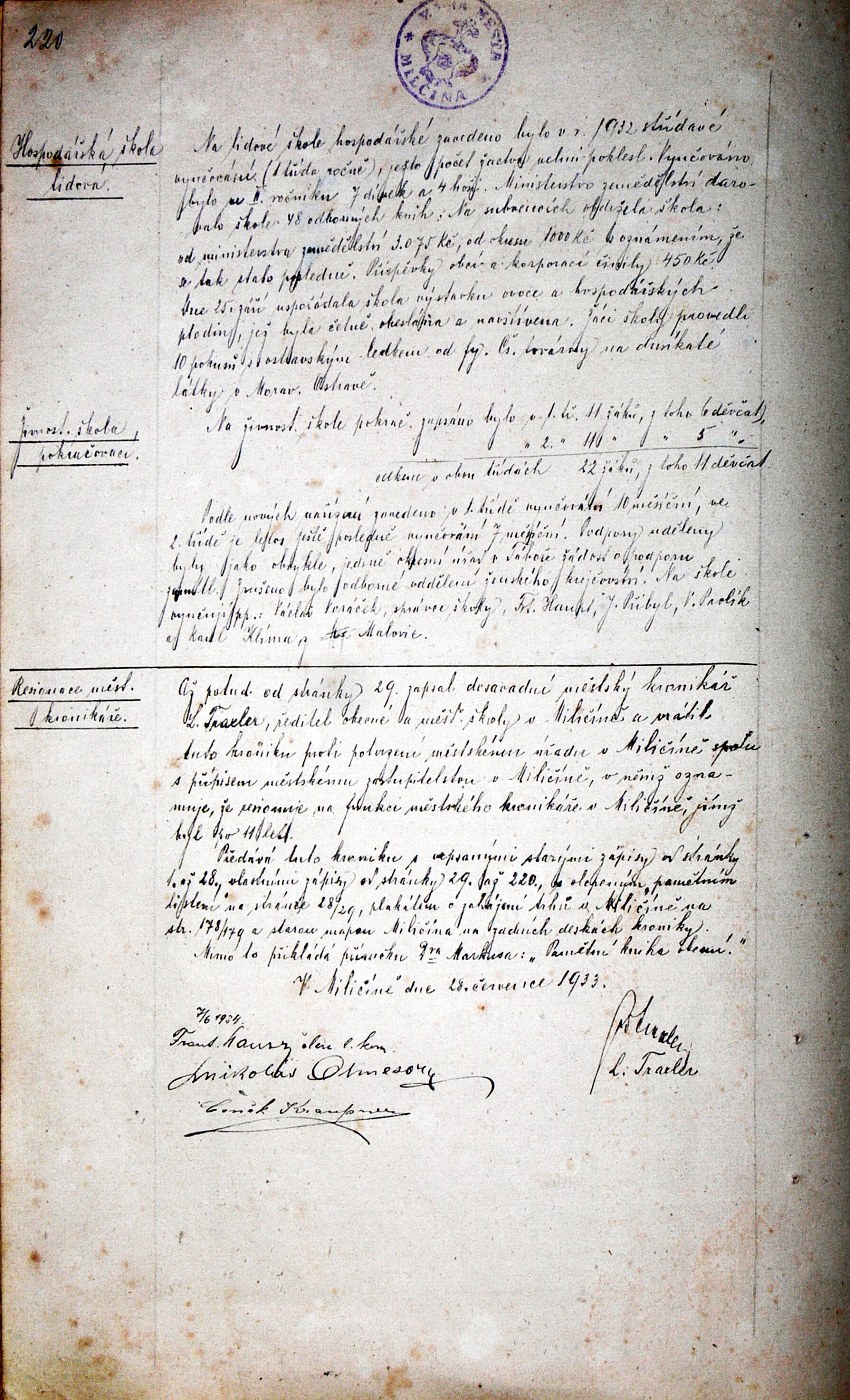 220
MILČINA
Hospodářská škola
lidová.
Na lidové škole hospodářské zavedeno bylo v r. 1932 střídavé
vyučování (1 třída ročně), ježto počet žactva velmi poklesl. Vyučováno
bylo ve II. ročníku 7 dívek a 4 hoši. Ministerstvo zemědělství daro-
valo škole 48 odborných knih. Na subvencích obdržela škola:
od ministerstva zemědělství 3.075 Kč, od okresu 1000 Kč s oznámením, že
se tak stalo posledně. Příspěvky obcí a korporací činily 450 Kč.
Dne 25. září uspořádala škola výstavku ovoce a hospodářských
plodin, jež byla četně obeslána a navštívena. Žáci školy provedli
10 pokusů s ostravským ledkem od fy. Čs. továrny na dusíkaté
látky v Morav. Ostravě.
Živnost. škola
pokračovací.
Na živnost. škole pokrač. zapsáno bylo v 1. tř. 11 žáků, z toho 6 děvčat,
" 2. " 11 " " 5 "
celkem v obou třídách 22 žáků, z toho 11 děvčat.
Podle nových nařízení zavedeno v 1. třídě vyučování 10 měsíční, ve
2. třídě je letos ještě posledně vyučování 7 měsíční. Podpory uděleny
byly jako obvykle, jedině okresní úřad v Táboře žádost o podporu
zamítl. Zrušeno bylo odborné oddělení ženského krejčovství. Na škole
vyučují pp.: Václav Voráček, správce školy, Frt. Haupt, J. Přibyl, V. Pavlík
a Karel Klíma z Malovic.
Resignace měst.
kronikáře.
Až potud od stránky 29. zapsal dosavadní městský kronikář
L. Traxler, ředitel obecné a měšť. školy v Miličíně a vrátil
tuto kroniku proti potvrzení městskému úřadu v Miličíně spolu
s přípisem městskému zastupitelstvu v Miličíně, v němž ozna-
muje, že resignuje na funkci městského kronikáře v Miličíně, jímž
byl po 11 let.
Předává tuto kroniku s nepsanými starými zápisy od stránky
1. až 28., vlastními zápisy od stránky 29. až 220., se vloženým pamětním
listem na stránce 28/29, plakátem o zahájení trhů v Miličíně na
str. 178/179 a starou mapou Miličína na zadních deskách kroniky.
Mimo to přikládá příručku Dra Markusa: "Pamětní kniha obecní."
V Miličíně dne 28. července 1933.
7/6 1934.
Frant. člen l. kom.
L. Traxler
Mikoláš
Čeněk